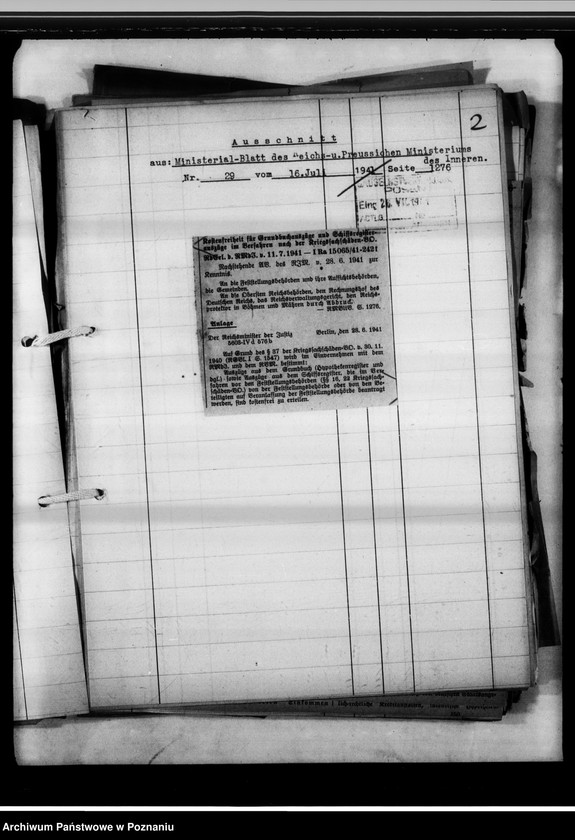 2
Ausschnitt
aus: Ministerial-Blatt des Reichs-u.Preussichen Ministeriums
des Inneren.
Nr. 29 vom 16.Juli 1941 Seite 1276
Eing
Kostenfreiheit für Grundbuchauszüge und Schiffsregister-
auszüge im Verfahren nach der Kriegssachschäden-VO.
RdErl. d. RMdJ. v. 11. 7. 1941 — I Ra 15065/41-2421
Nachstehende AB. des RJM. v. 28. 6. 1941 zur
Kenntnis.
An die Feststellungsbehörden und ihre Aufsichtsbehörden,
die Gemeinden.
An die Obersten Reichsbehörden, den Rechnungshof des
Deutschen Reichs, das Reichsverwaltungsgericht, den Reichs-
protektor in Böhmen und Mähren durch Abdruck.
— RMBliV. S. 1276.
Anlage
Der Reichsminister der Justiz Berlin, den 28. 6. 1941
5605-IV d 576 b
Auf Grund des § 37 der Kriegssachschäden-VO. v. 30. 11.
1940 (RGBl. I S. 1547) wird im Einvernehmen mit dem
RMdJ. und dem RFM. bestimmt:
Auszüge aus dem Grundbuch (Hypothekenregister und
dgl.) sowie Auszüge aus dem Schiffsregister, die im Ver-
fahren vor den Feststellungsbehörden (§§ 16, 23 Kriegssach-
schäden-VO.) von der Feststellungsbehörde oder von den Be-
teiligten auf Veranlassung der Feststellungsbehörde beantragt
werden, sind kostenfrei zu erteilen.
Archiwum Państwowe w Poznaniu